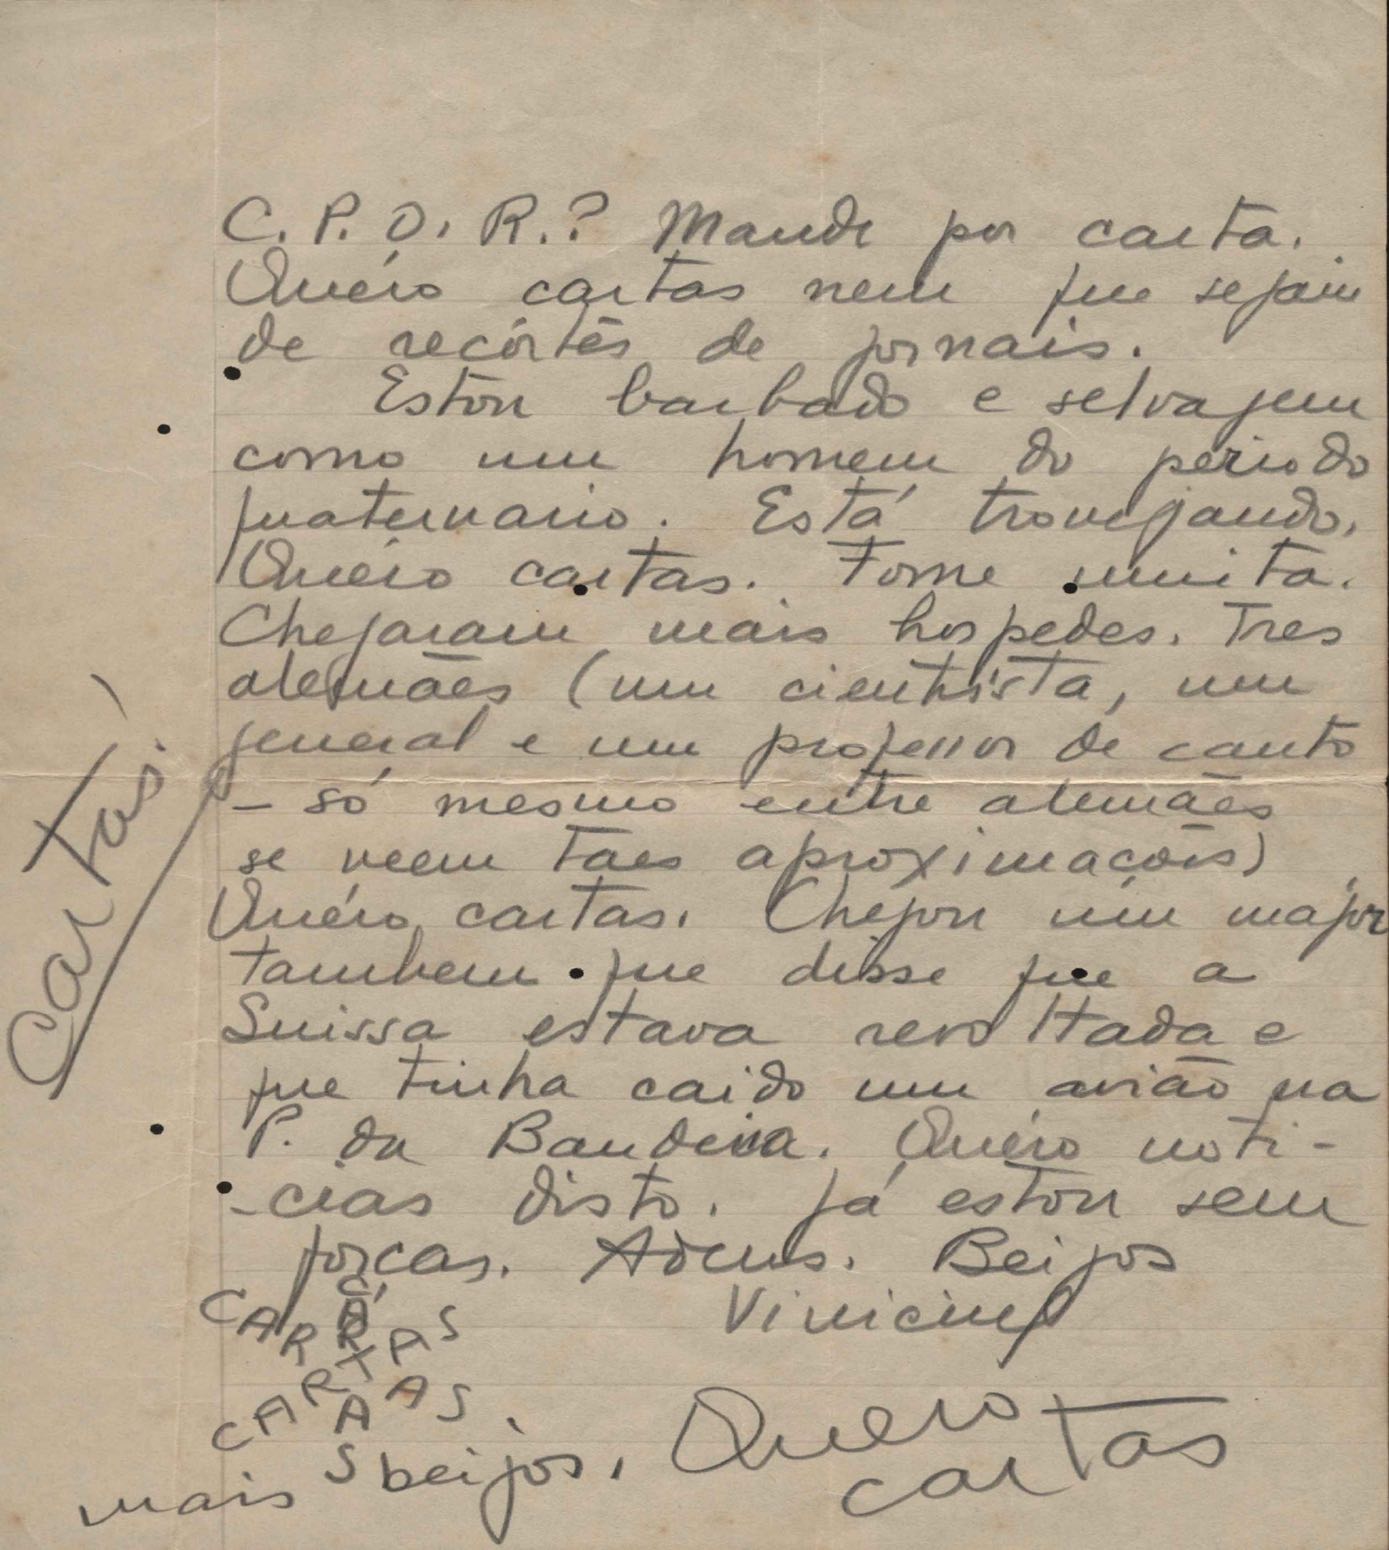 C. P. O. R.? Mande por carta.
Quéro cartas nem que sejam
de recórtes de jornais.
Estou barbado e selvagem
como um homem do periodo
quaternario. Está trovejando.
Quéro cartas. Tome muita.
Chegaram mais hospedes. Tres
alemães (um cientista, um
general e um professor de canto
— só mesmo entre alemães
se veem taes aproximacões)
Quéro cartas. Chegou um major
tambem que disse que a
Suissa estava revoltada e
que tinha caido um avião na
P. da Bandeira. Quéro noti-
-cias disto. Já estou sem
forcas. Adeus. Beijos
Vinicius
CARTAS
CARTAS
CARTAS
mais beijos. Quero
cartas
Cartas!